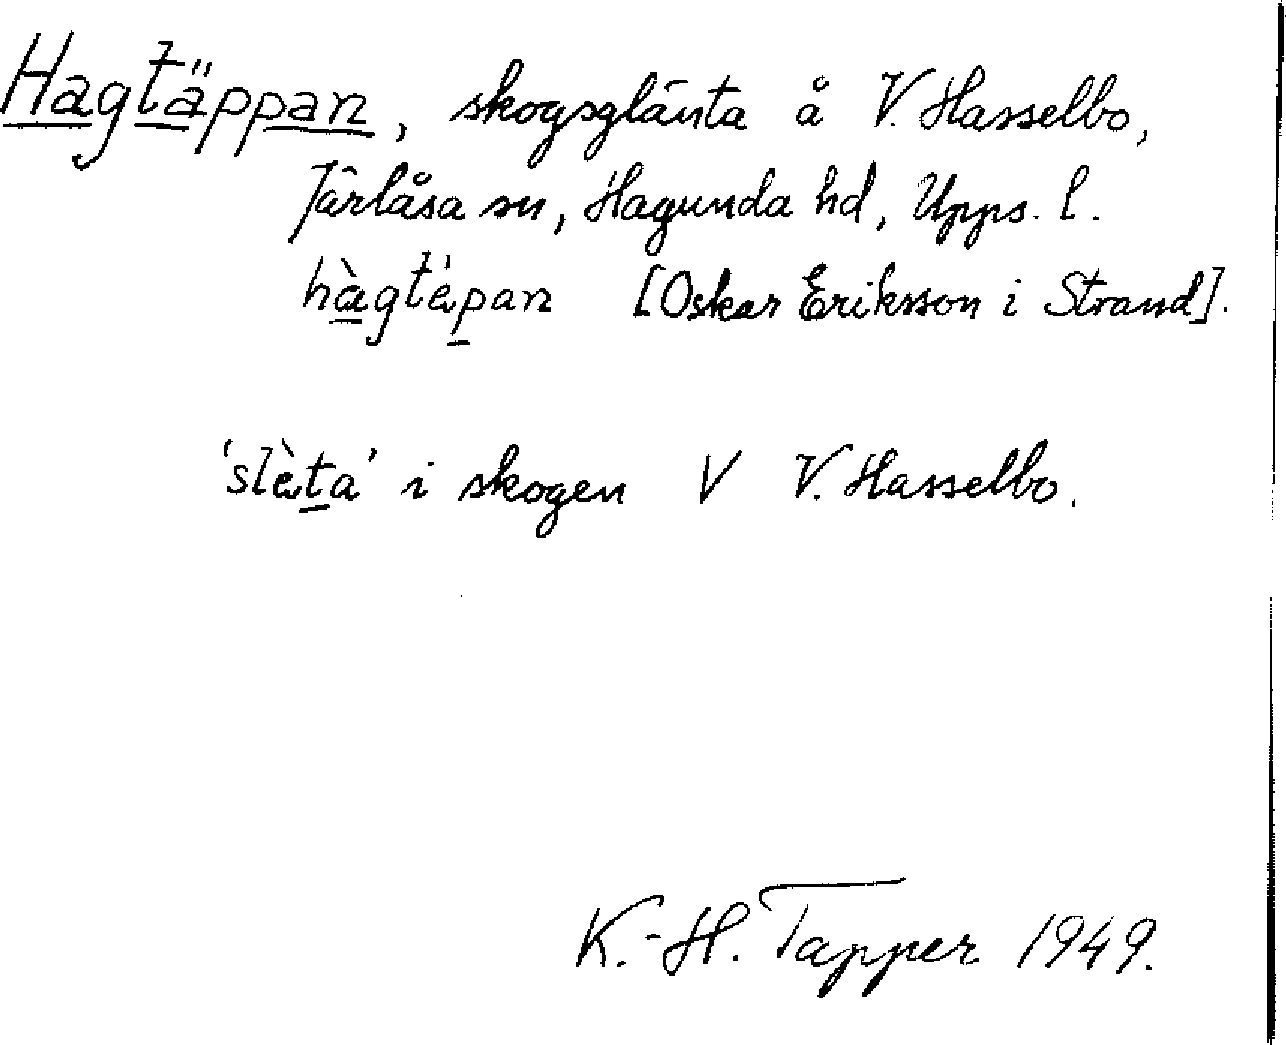 Hagtäppan, skogsglänta å V. Hasselbo,
Järlåsa sn, Hagunda hd, Upps. l.
hàgtèpan [Oskar Eriksson i Strand].
'slèta' i skogen V V. Hasselbo.
K.-H. Tapper 1949.